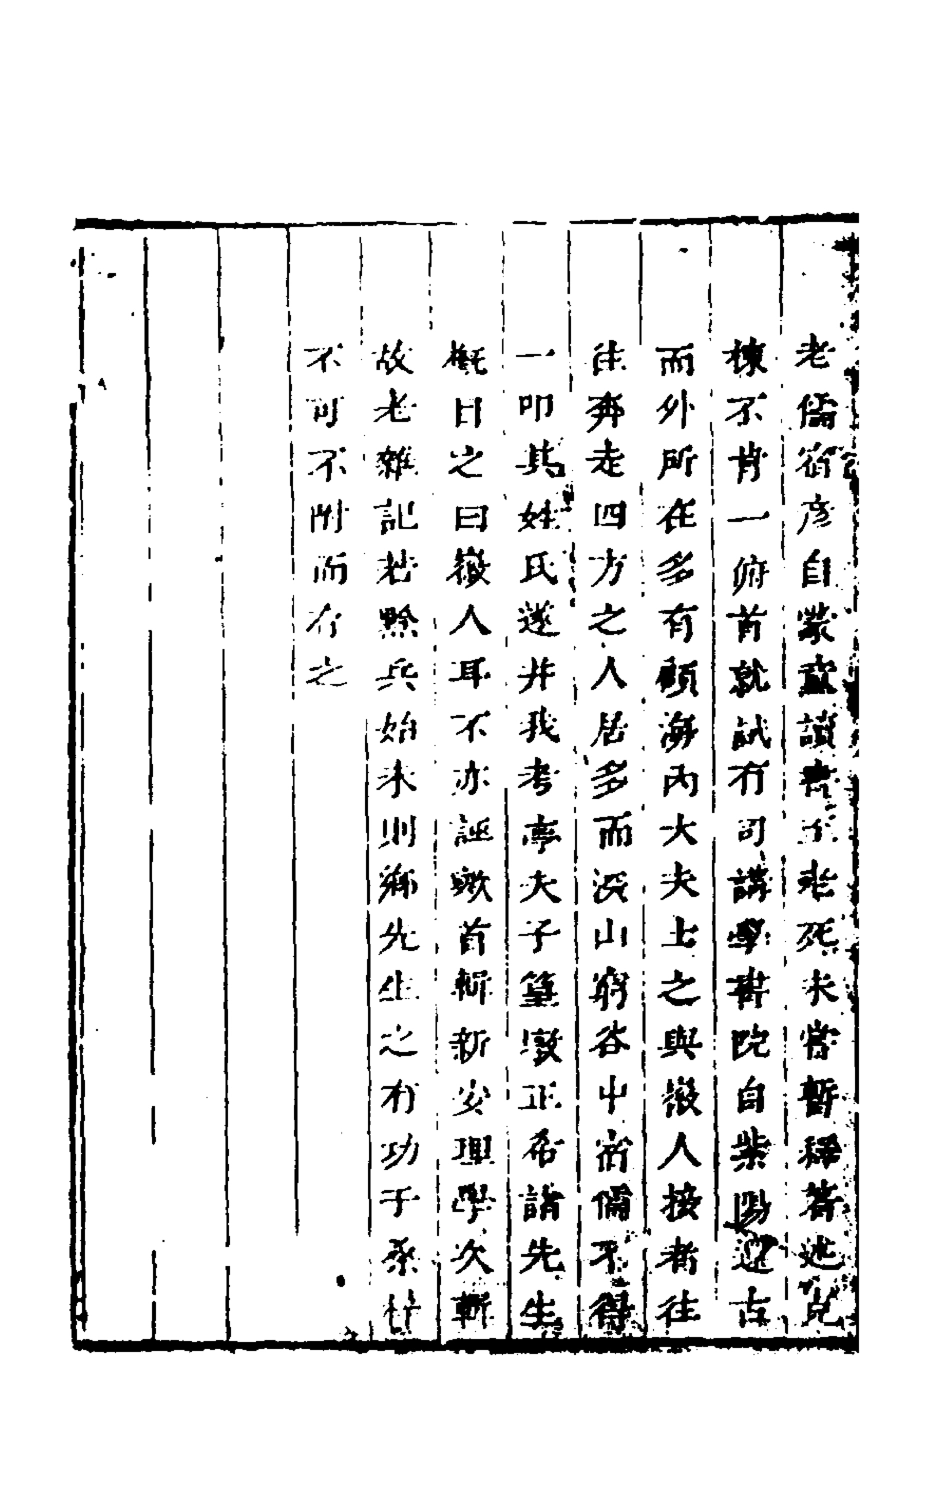 老儒宿彥自蒙童讀書至老死未嘗暫稀著述充
棟不肯一俯首就試有司講學書院自紫陽還古
而外所在多有顧海內大夫士之與徽人接者往
往奔走四方之人居多而深山窮谷中宿儒不得
一叩其姓氏遂并我考亭夫子篁墩正希諸先生
槪目之曰徽人耳不亦誣歟首輯新安理學次輯
故老雜記若黟兵始末則鄉先生之有功于桑梓
不可不附而存之